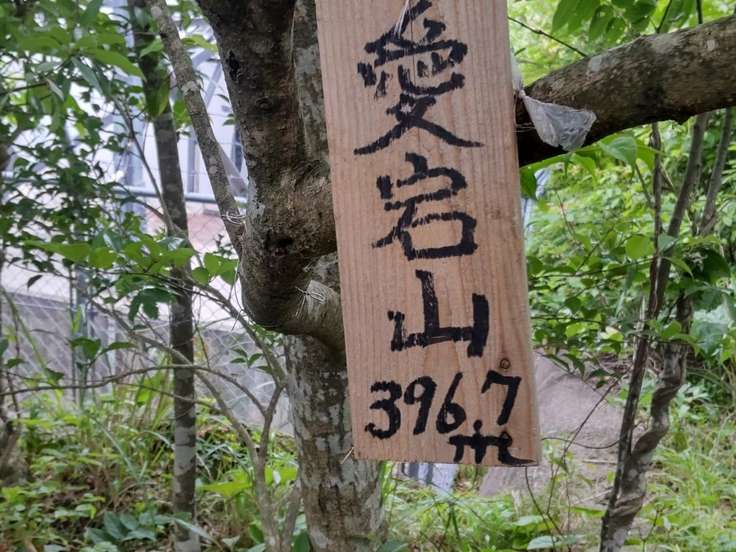 愛宕山
396.7